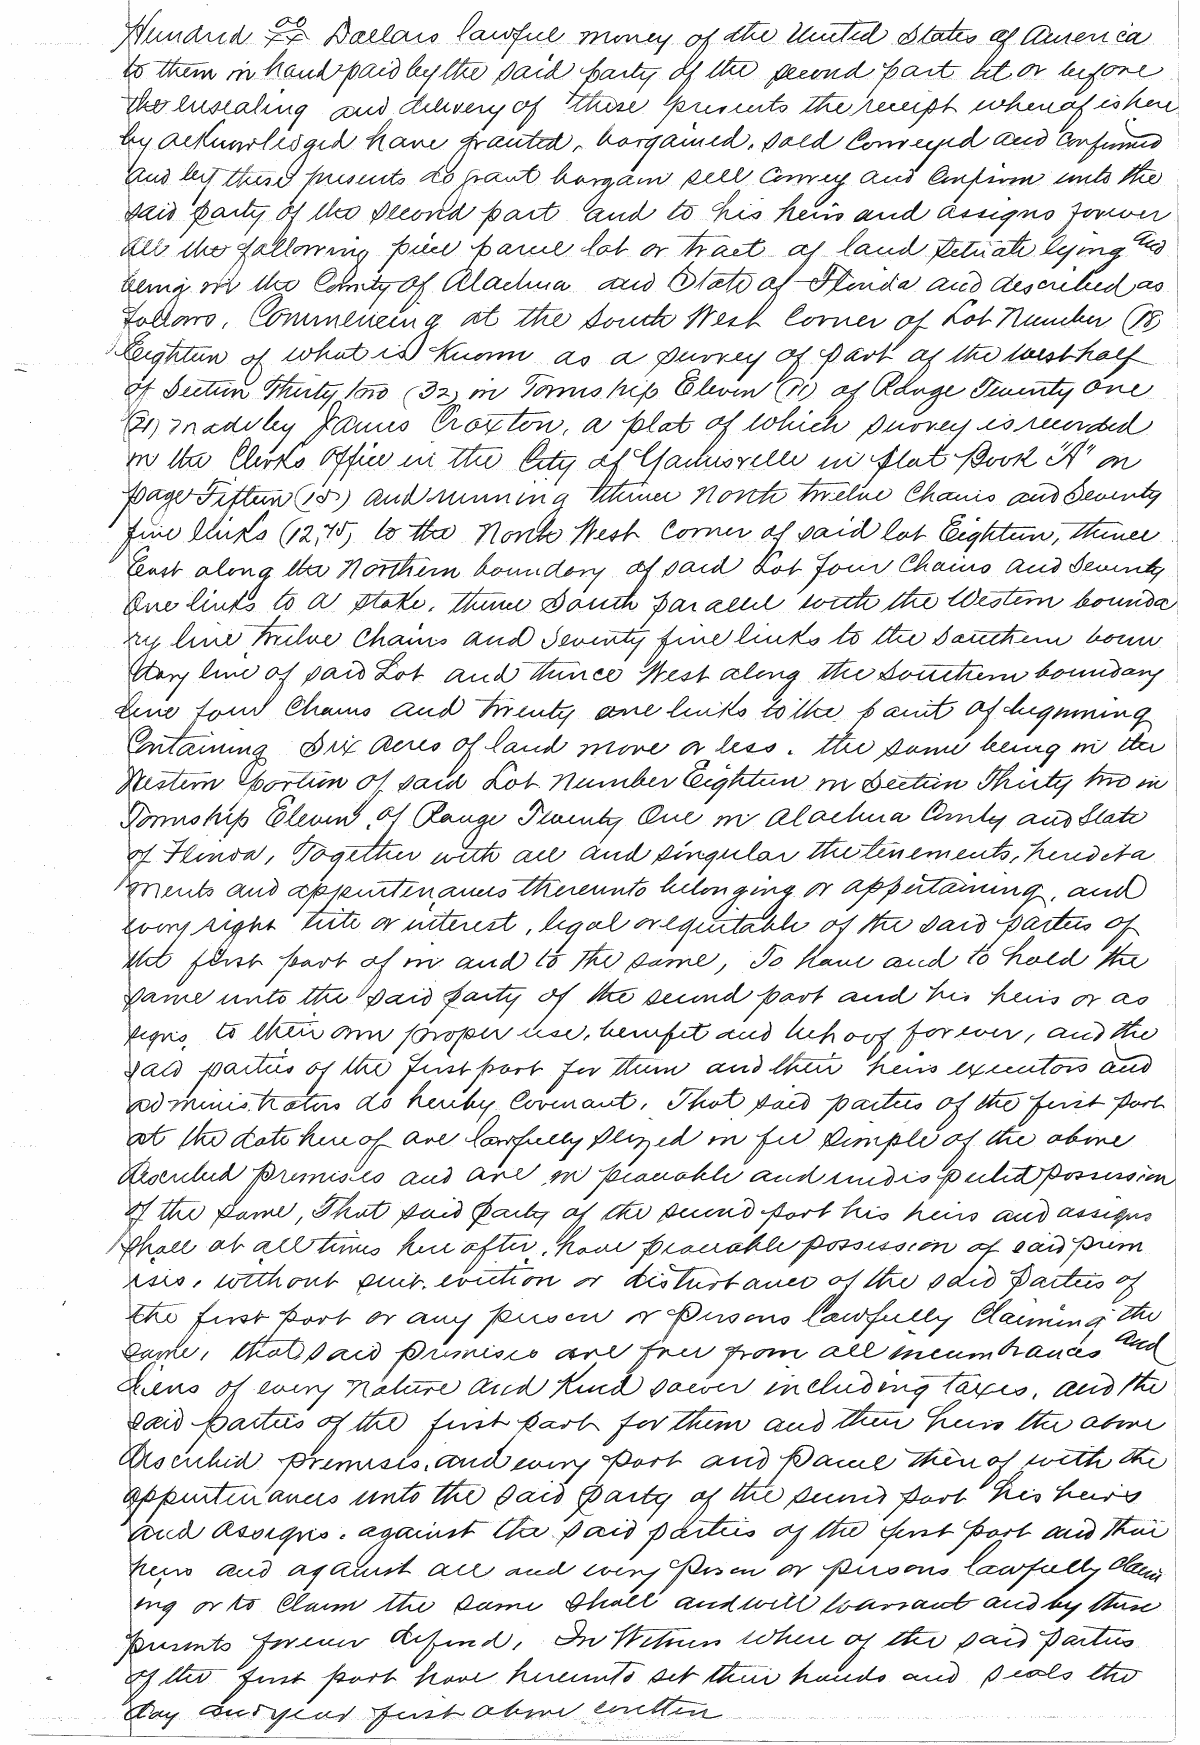 Hundred 00/xx Dollars lawful money of the United States of America
to them in hand paid by the said party of the second part at or before
the ensealing and delivery of these presents the receipt whereof is here
by acknowledged have granted, bargained, sold Conveyed and Confirmed
and by these presents do grant bargain sell Convey and Confirm unto the
said party of the second part and to his heirs and assigns forever
all the following piece parcel lot or tract of land situate lying and
being in the County of Alachua and State of Florida and described as
follows, Commencing at the South West Corner of Lot Number (18)
Eighteen of what is known as a survey of part of the west half
of Section Thirty two (32) in Township Eleven (11) of Range Twenty one
(21) made by James Croxton, a plat of which survey is recorded
in the Clerks Office in the City of Gainesville in plat Book "A" on
page Fifteen (15) and running thence North twelve Chains and Seventy
five links (12,75) to the North West Corner of said lot Eighteen, thence
East along the Northern boundary of said Lot four Chains and Seventy
One links to a stake, thence South parallel with the Western bounda
ry line twelve Chains and Seventy five links to the Southern boun
dary line of said Lot and thence West along the Southern boundary
line four Chains and twenty one links to the point of beginning
Containing Six acres of land more or less. the same being in the
Western portion of said Lot Number Eighteen in Section Thirty two in
Township Eleven of Range Twenty One in Alachua County and State
of Florida, Together with all and singular the tenements, heredita
ments and appurtenances thereunto belonging or appertaining, and
every right title or interest, legal or equitable of the said parties of
the first part of in and to the same, To have and to hold the
same unto the said party of the second part and his heirs or as
signs, to their own proper use, benefit and behoof forever, and the
said parties of the first part for them and their heirs executors and
administrators do hereby Covenant, That said parties of the first part
at the date here of are lawfully seized in fee simple of the above
described premises and are in peaceable and undisputed possession
of the same, That said party of the second part his heirs and assigns
shall at all times here after, have peaceable possession of said prem
ises, without suit, eviction or disturbance of the said parties of
the first part or any person or persons lawfully Claiming the
same, that said premises are free from all incumbrances and
liens of every nature and kind soever including taxes, and the
said parties of the first part for them and their heirs the above
described premises, and every part and parcel thereof with the
appurtenances unto the said party of the second part his heirs
and assigns. against the said parties of the first part and their
heirs and against all and every person or persons lawfully claim
ing or to Claim the same shall and will warrant and by these
presents forever defend, In Witness where of the said parties
of the first part have hereunto set their hands and seals the
day and year first above written